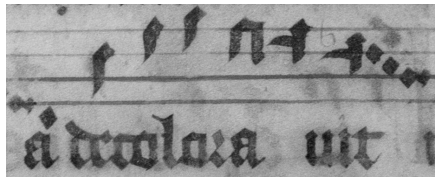 a decolora uit